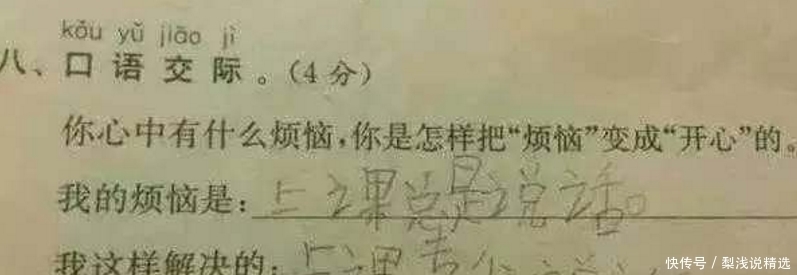 kǒu yǔ jiāo jì
八、口语交际。(4分)
你心中有什么烦恼,你是怎样把“烦恼”变成“开心”的。
我的烦恼是:上课总是说话。
我这样解决的:上课
快传号/梨浅说精选